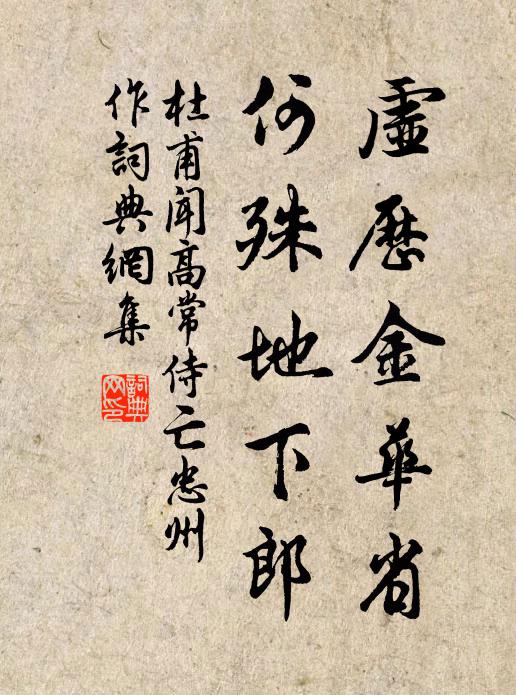 虛歷金華省
何殊地下郎
杜甫聞高常侍亡忠州
作詞典網集
詞典网印